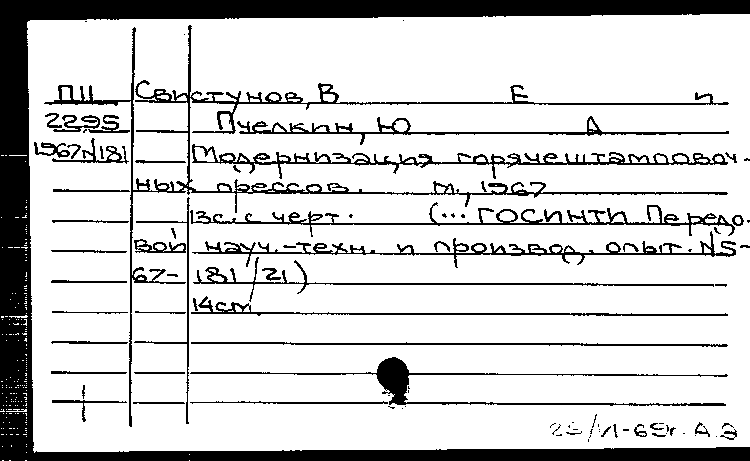 П11 Свистунов, В Е и
2295 Пчелкин, Ю А
1967N181 Модернизация горячештамповоч-
ных прессов. М., 1967
13с. с черт. (... ГОСИНТИ Передо-
вой науч.-техн. и производ. опыт. N5-
67-181/21)
14см.
25/VI-69г. А.Э